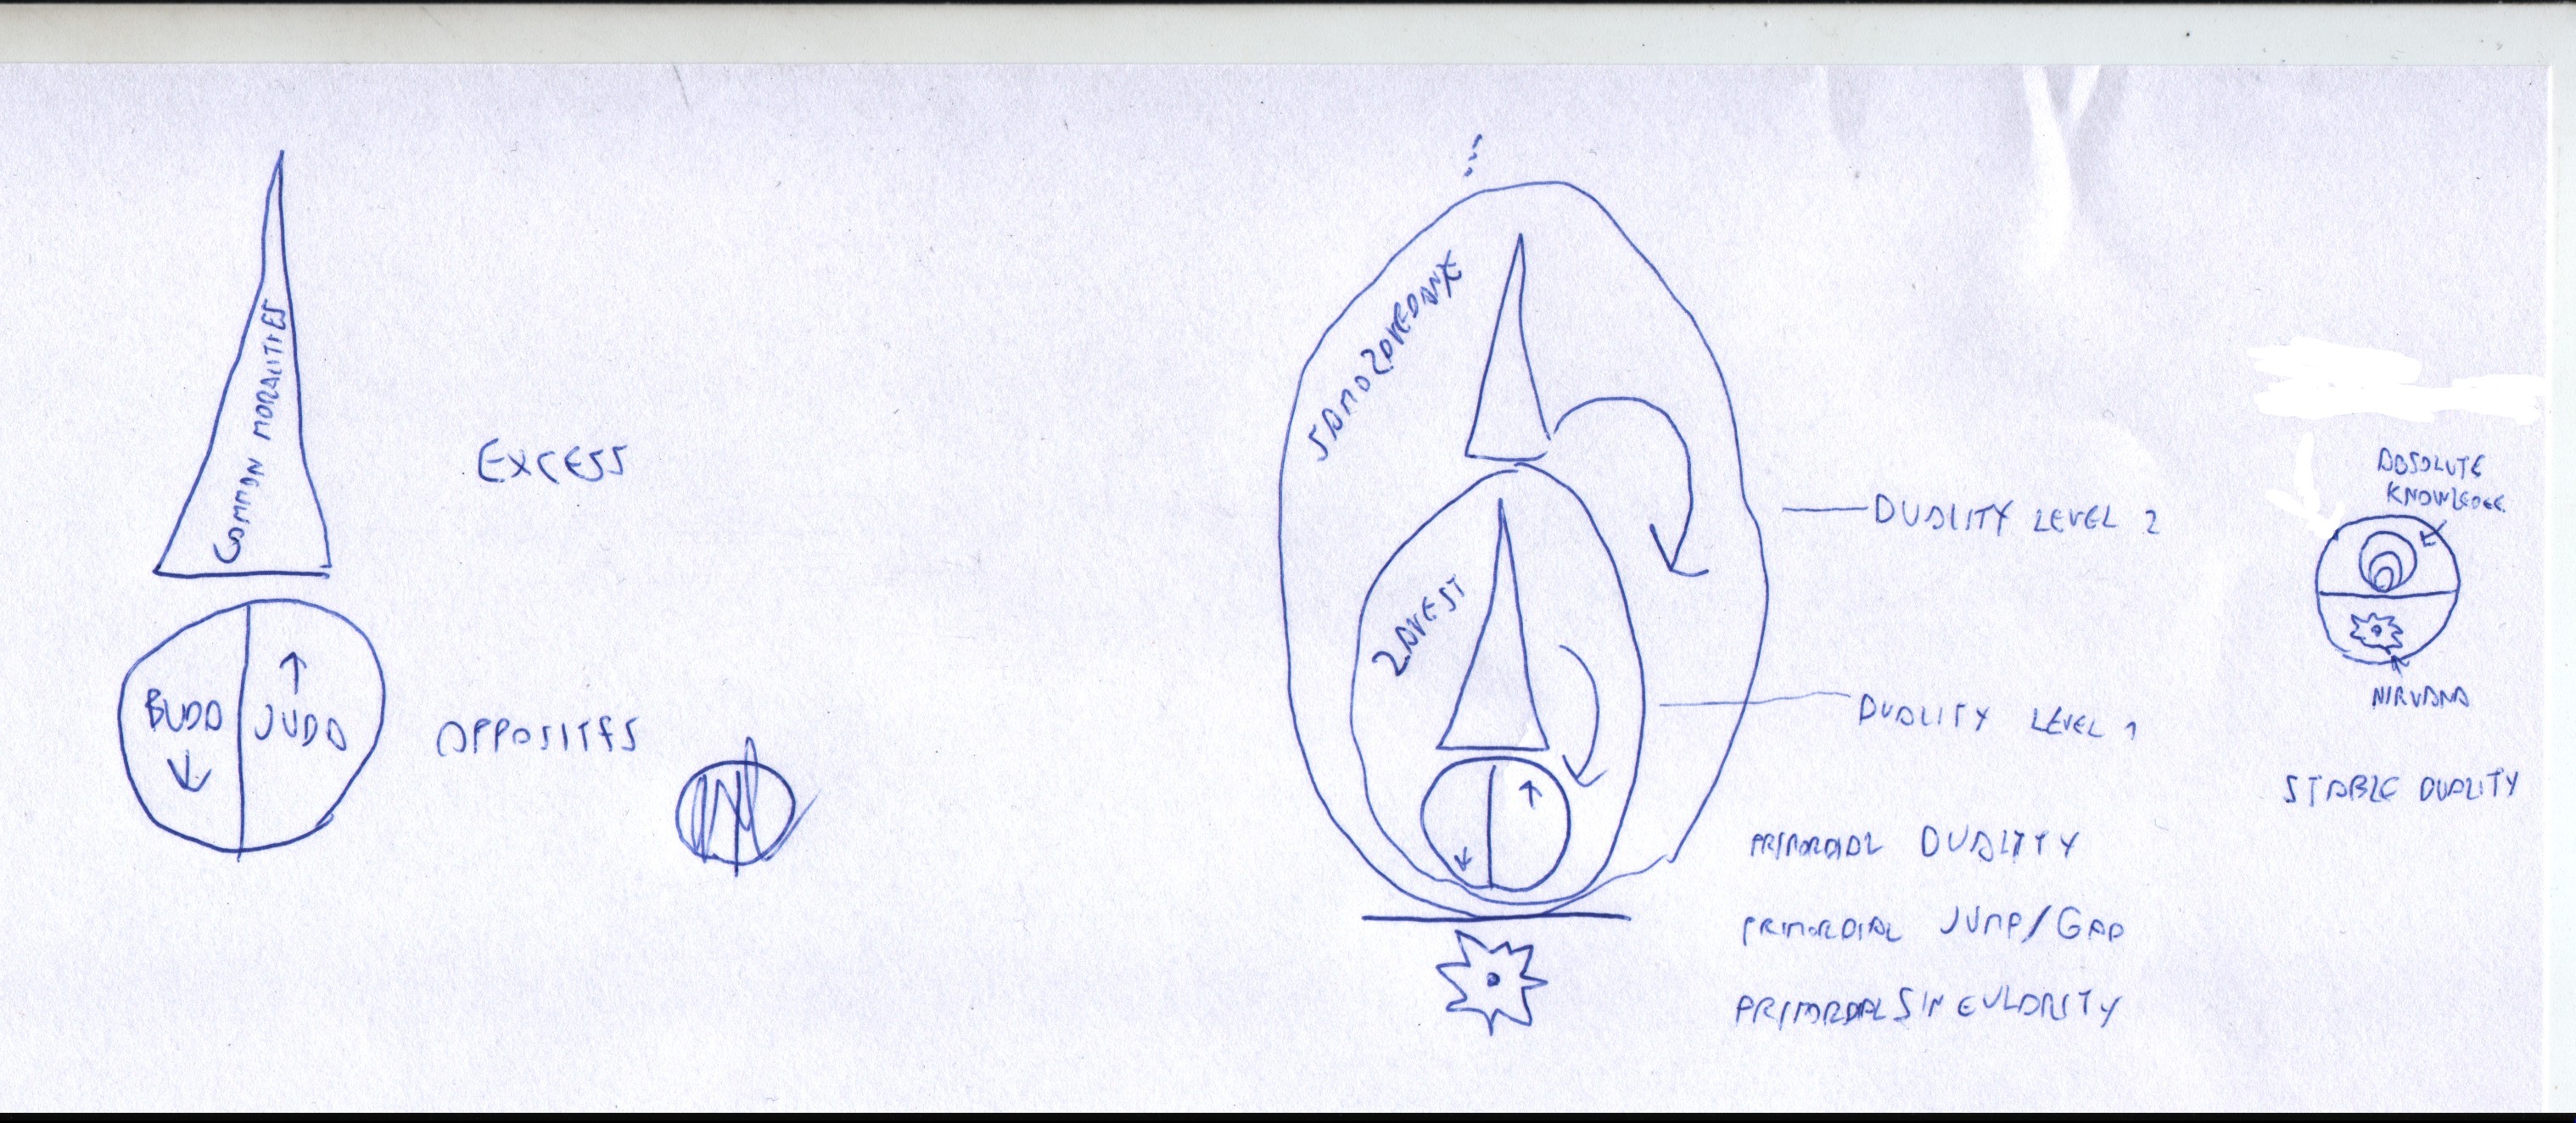 COMMON MORALITIES
EXCESS
BUDA
JUDA
OPPOSITES
SAMOZAVEDANJE
ZAVEST
DUALITY LEVEL 2
DUALITY LEVEL 1
PRIMORDIAL DUALITY
PRIMORDIAL JUMP/GAP
PRIMORDIAL SINGULARITY
ABSOLUTE
KNOWLEDGE
NIRVANA
STABLE DUALITY